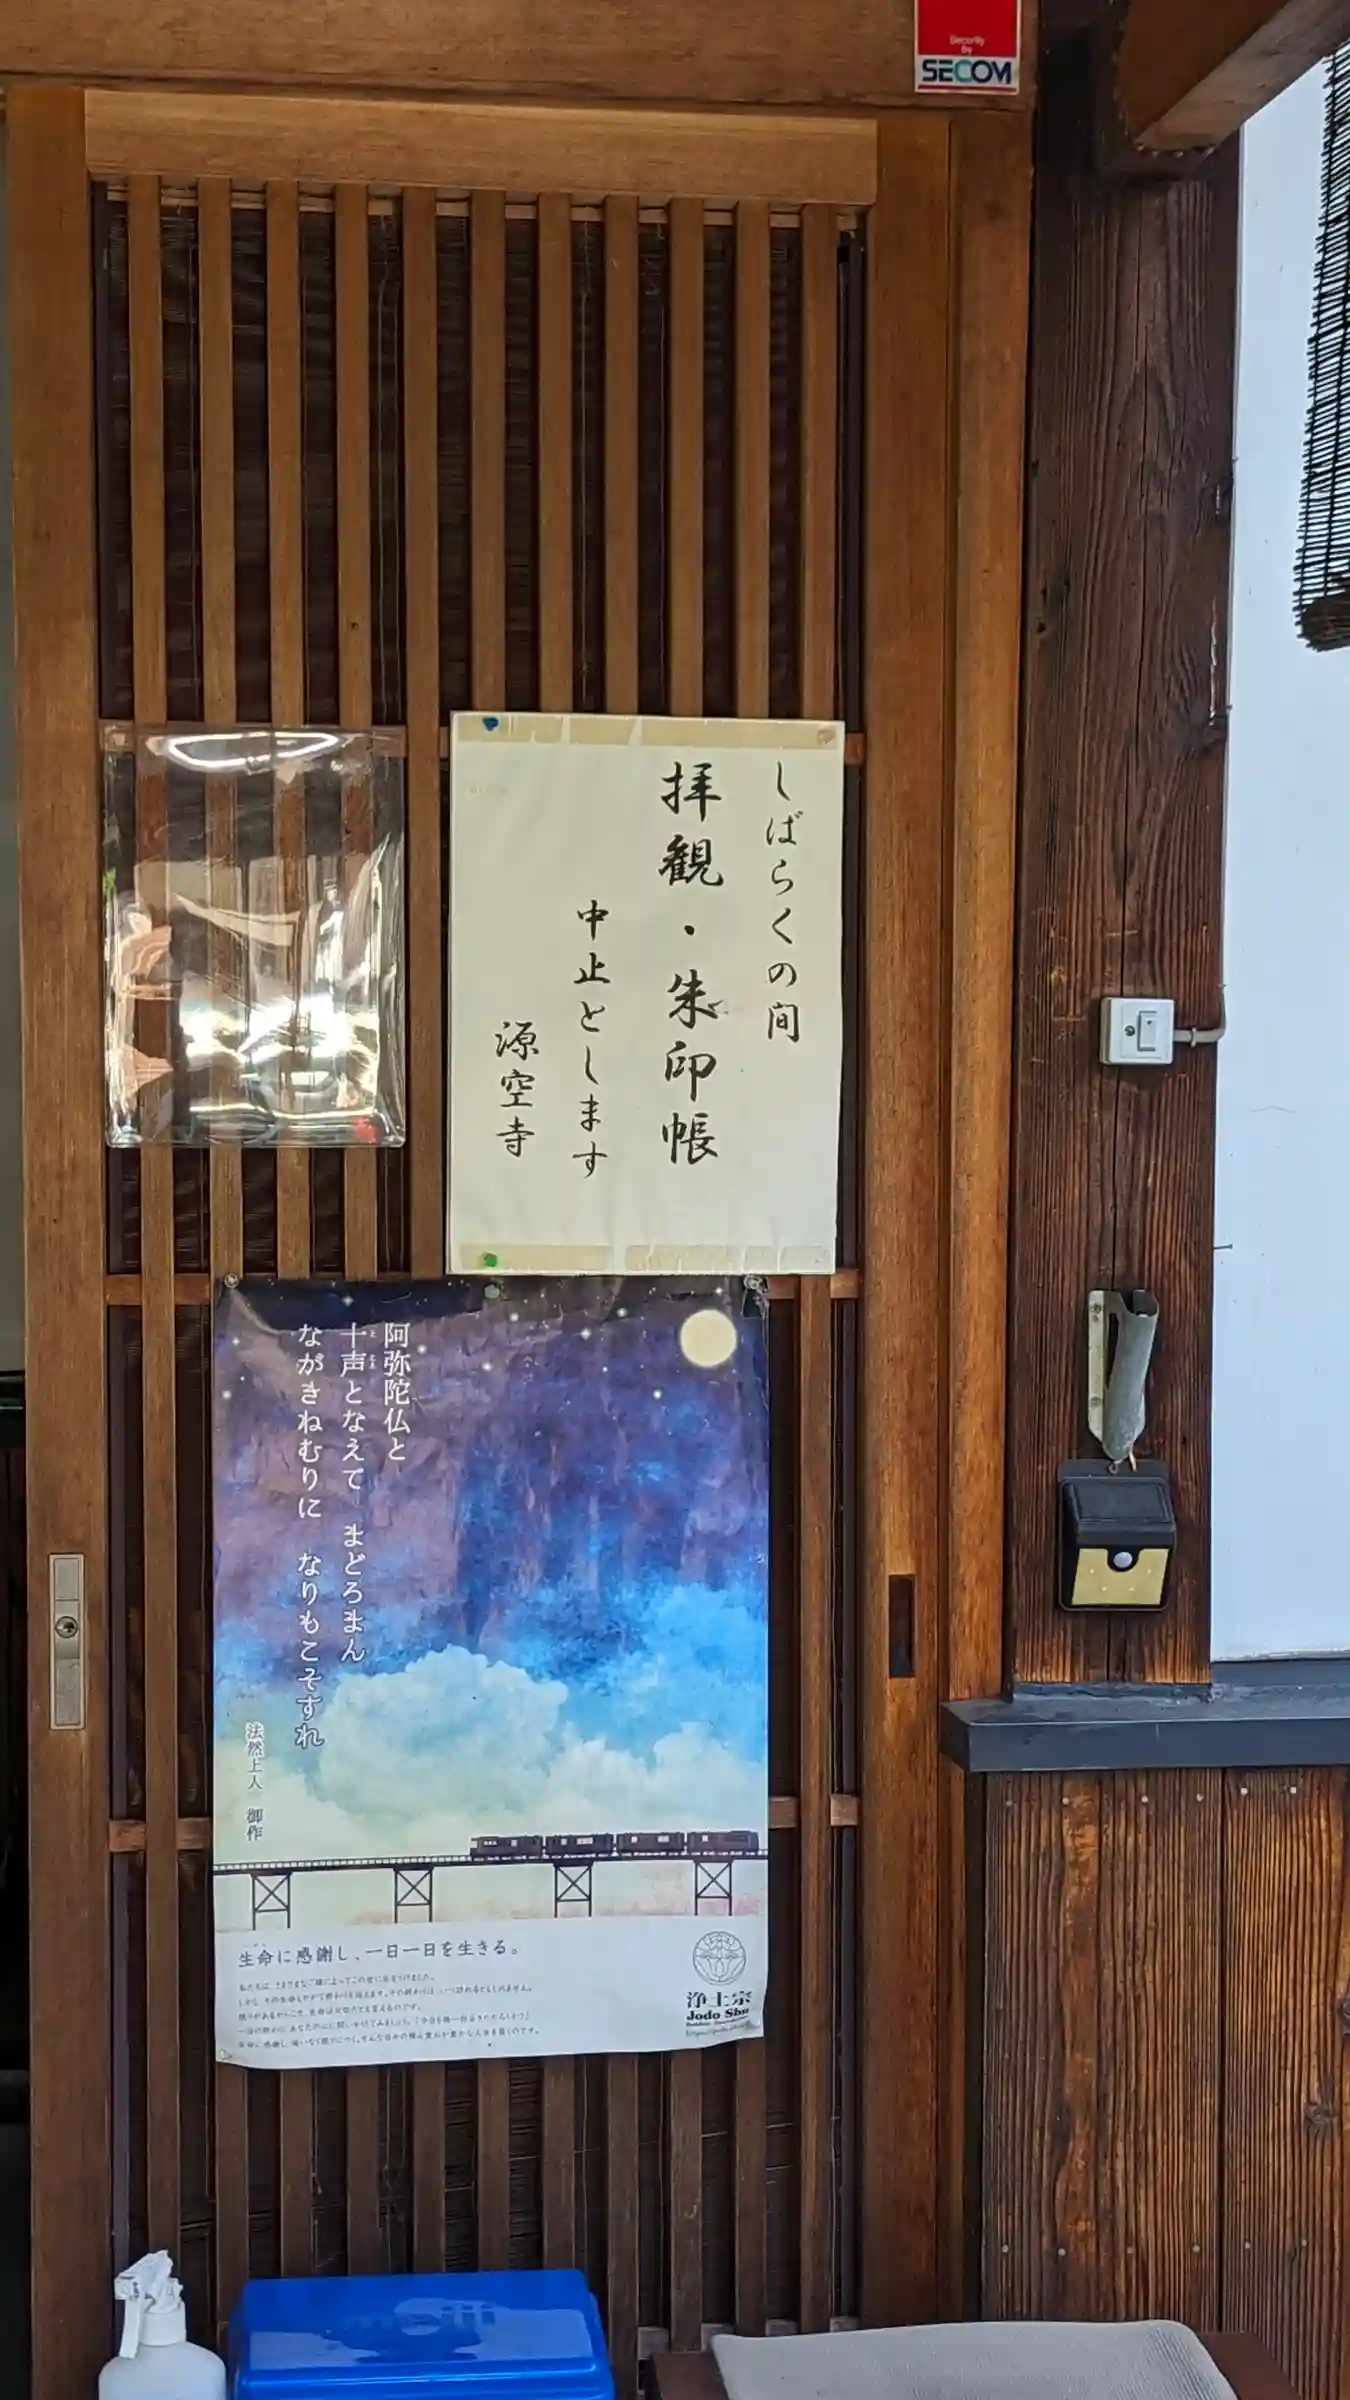 Security
by
SECOM
しばらくの間
拝観・朱印帳
中止とします
源空寺
阿弥陀仏と
十声となえて まどろまん
ながきねむりに なりもこそすれ
法然上人 御作
生命に感謝し、一日一日を生きる。
浄土宗
Jodo Shu
meiji